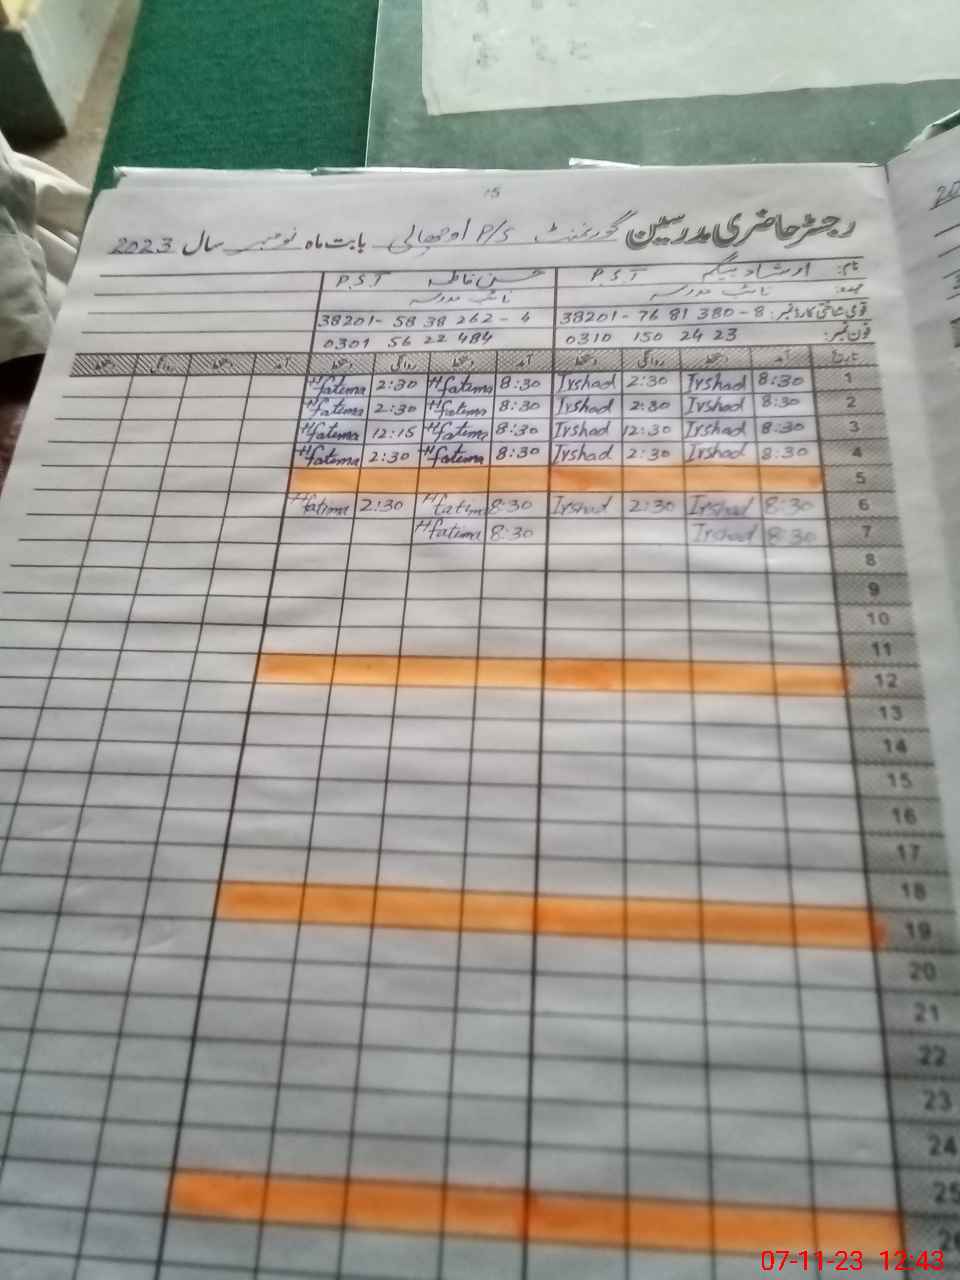 15
رجسٹر حاضری مدرسین گورنمنٹ P/S اوچھالی بابت ماہ نومبر سال 2023
نام: ارشاد بیگم P.S.T حسن فاطمہ P.S.T
عہدہ: نائب مدرسہ نائب مدرسہ
قومی شناختی کارڈ نمبر: 38201-76 81 380-8 38201-58 38 262-4
فون نمبر: 0310 150 24 23 0301 56 22 484
تاریخ آمد دستخط روانگی دستخط آمد دستخط روانگی دستخط آمد دستخط روانگی دستخط
1 8:30 Irshad 2:30 Irshad 8:30 Hfatima 2:30 Hfatima
2 8:30 Irshad 2:30 Irshad 8:30 Hfatima 2:30 Hfatima
3 8:30 Irshad 12:30 Irshad 8:30 Hfatima 12:15 Hfatima
4 8:30 Irshad 2:30 Irshad 8:30 Hfatima 2:30 Hfatima
5
6 8:30 Irshad 2:30 Irshad 8:30 Hfatima 2:30 Hfatima
7 8:30 Irshad 8:30 Hfatima
8
9
10
11
12
13
14
15
16
17
18
19
20
21
22
23
24
25
26
07-11-23 12:43